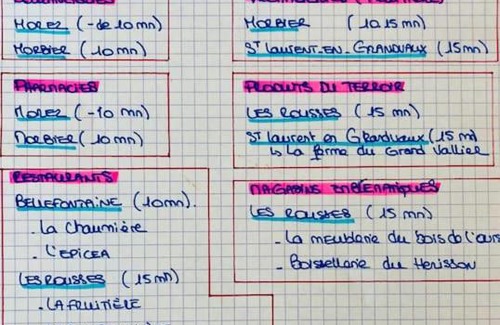 MOREZ (- de 10 mn)
MORBIER (10 mn)
PHARMACIES
MOREZ (-10 mn)
MORBIER (10 mn)
RESTAURANTS
BELLEFONTAINE (10mn).
- La chaumière
- L'EPICEA
LES ROUSSES (15 mn)
- LA FRUITIÈRE
MORBIER (10 15 mn)
St LAURENT-EN-GRANDVAUX (15mn)
PRODUITS DU TERROIR
LES ROUSSES (15 mn)
St Laurent en Grandvaux (15 mn)
↳ La ferme du Grand Vallier
MAGASINS EMBLEMATIQUES
LES ROUSSES (15 mn)
- La meublerie du bois de l'ours
- Boissellerie du Herisson